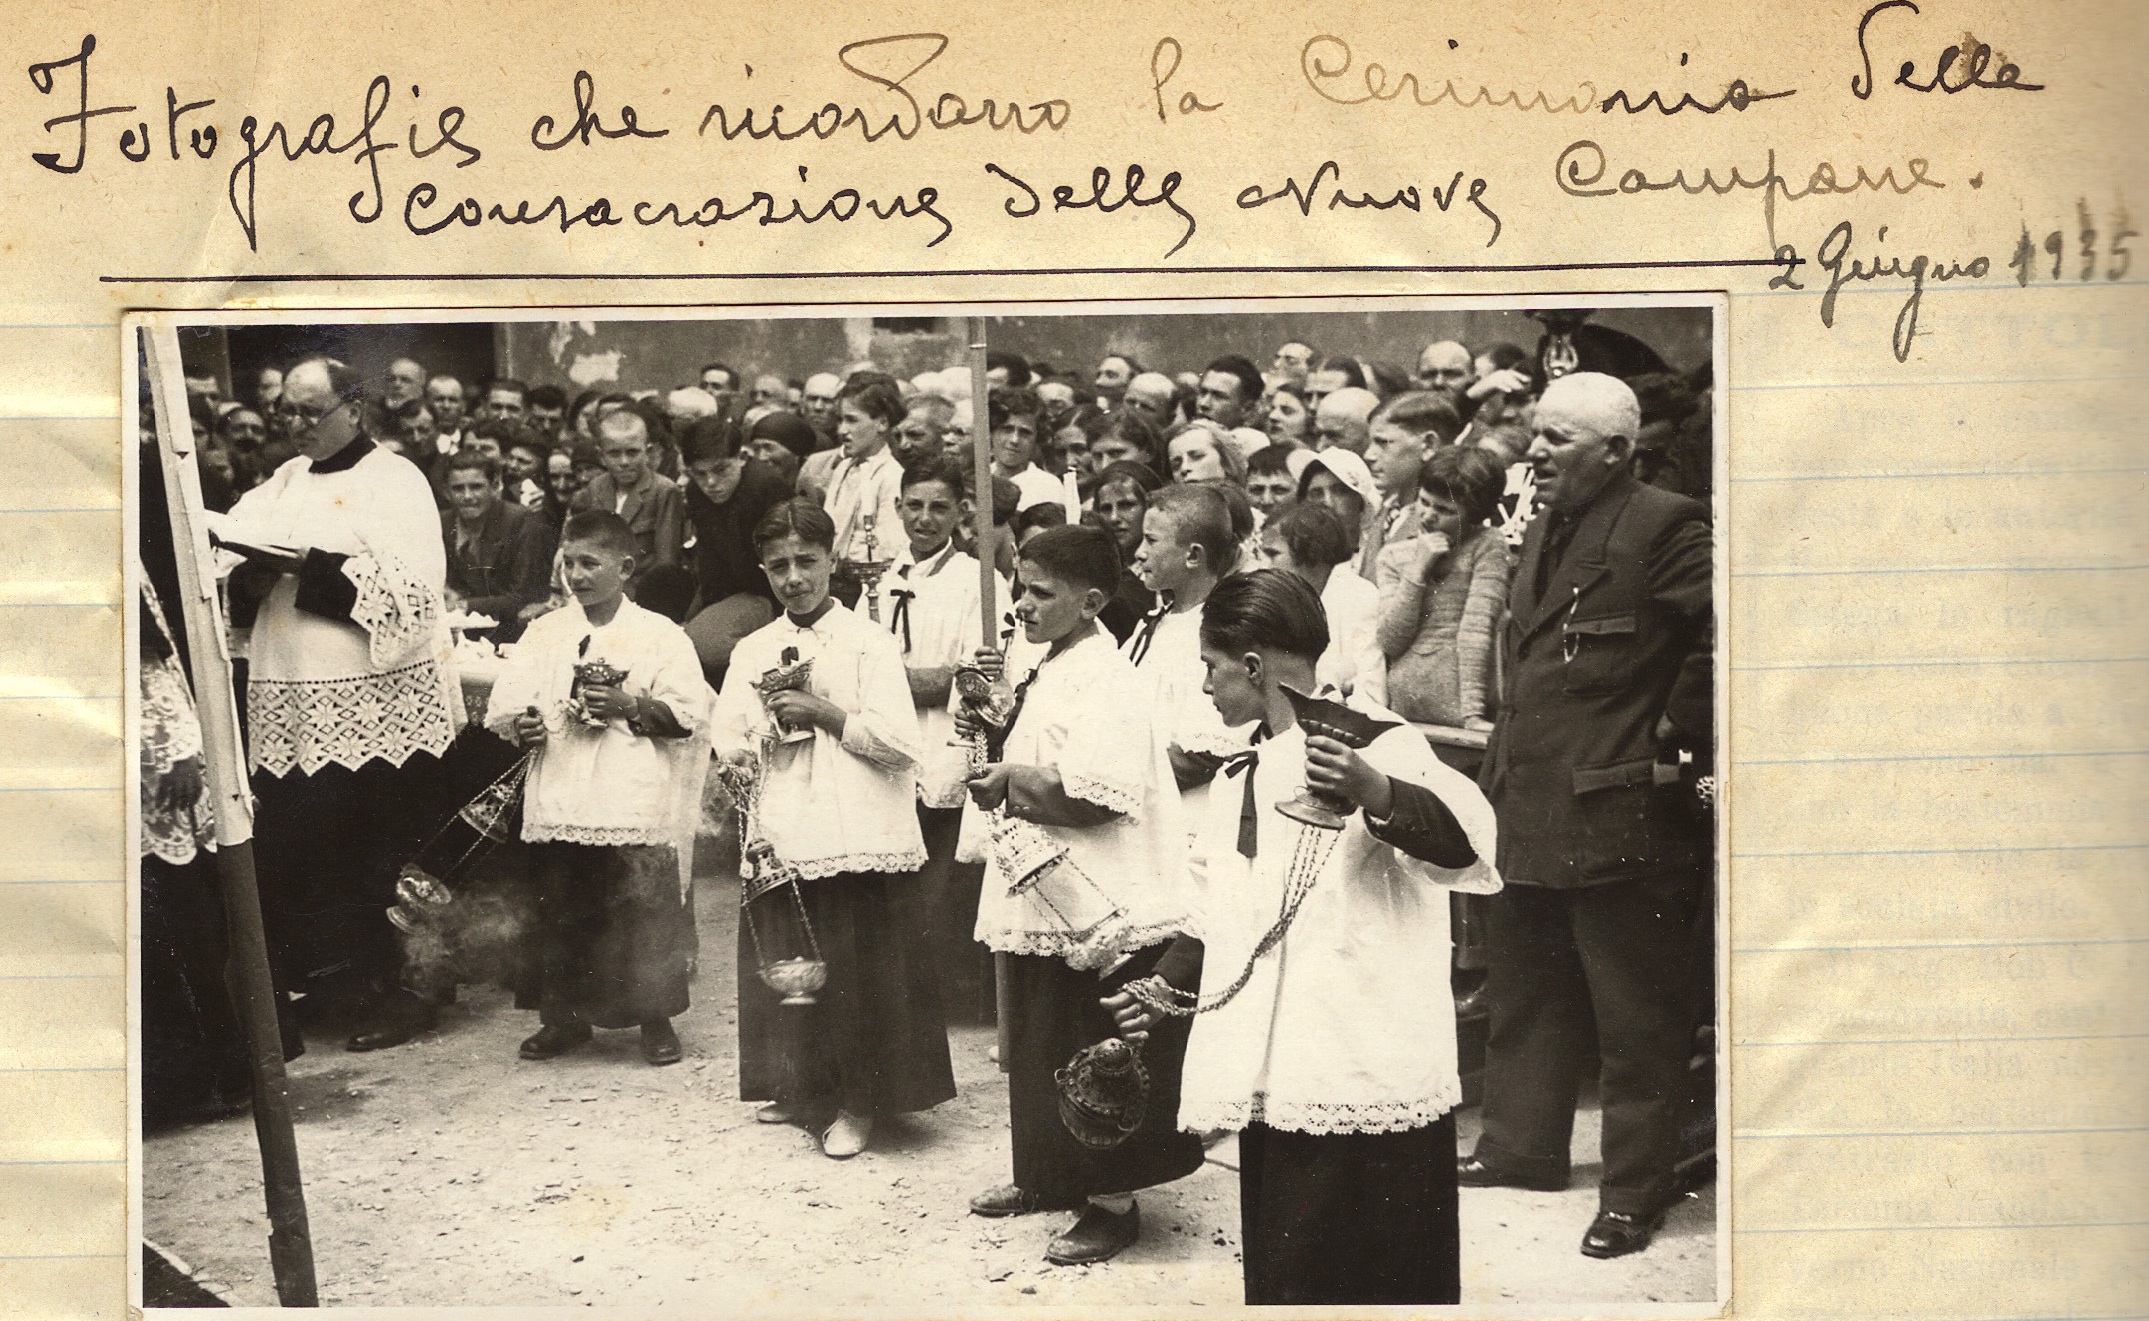 Fotografie che ricordano la Cerimonia della
Consacrazione delle Nuove Campane.
2 Giugno 1935